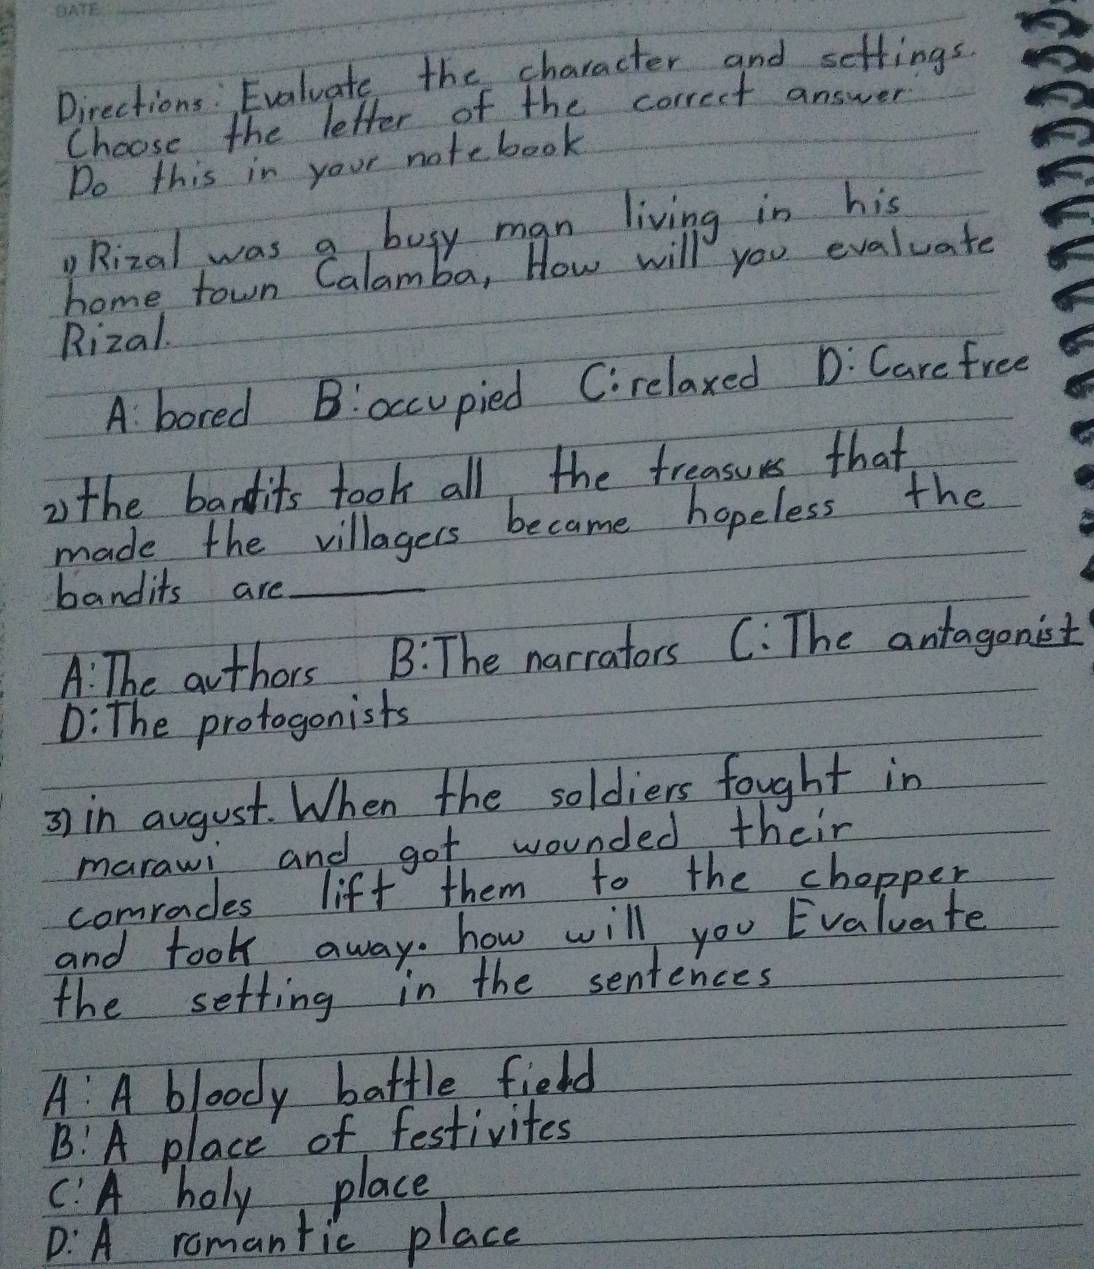 DATE
Directions: Evaluate the character and settings.
Choose the letter of the correct answer
Do this in your notebook
1) Rizal was a busy man living in his
home town Calamba, How will you evaluate
Rizal.
A: bored B: occupied C: relaxed D: Carefree
2) the bandits took all the treasures that
made the villagers became hopeless the
bandits are
A: The authors B: The narrators C: The antagonist
D: The protogonists
3) in august. When the soldiers fought in
marawi and got wounded their
comrades lift them to the chopper
and took away. how will you Evaluate
the setting in the sentences
A: A bloody battle field
B: A place of festivites
C: A holy place
D: A romantic place